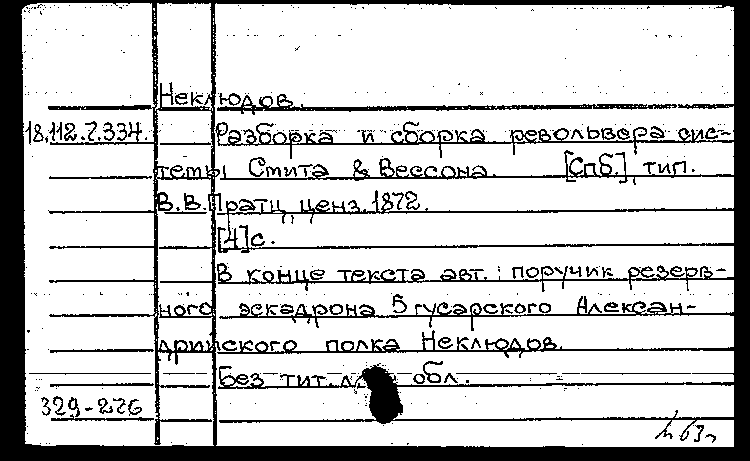 Неклюдов.
18.112.7.334. Разборка и сборка револьвера сис-
темы Смита & Вессона. [Спб.], тип.
В.В.Пратц, ценз. 1872.
[4]с.
В конце текста авт.: поручик резерв-
ного эскадрона 5 гусарского Алексан-
дрийского полка Неклюдов.
Без тит. л. обл.
329-276